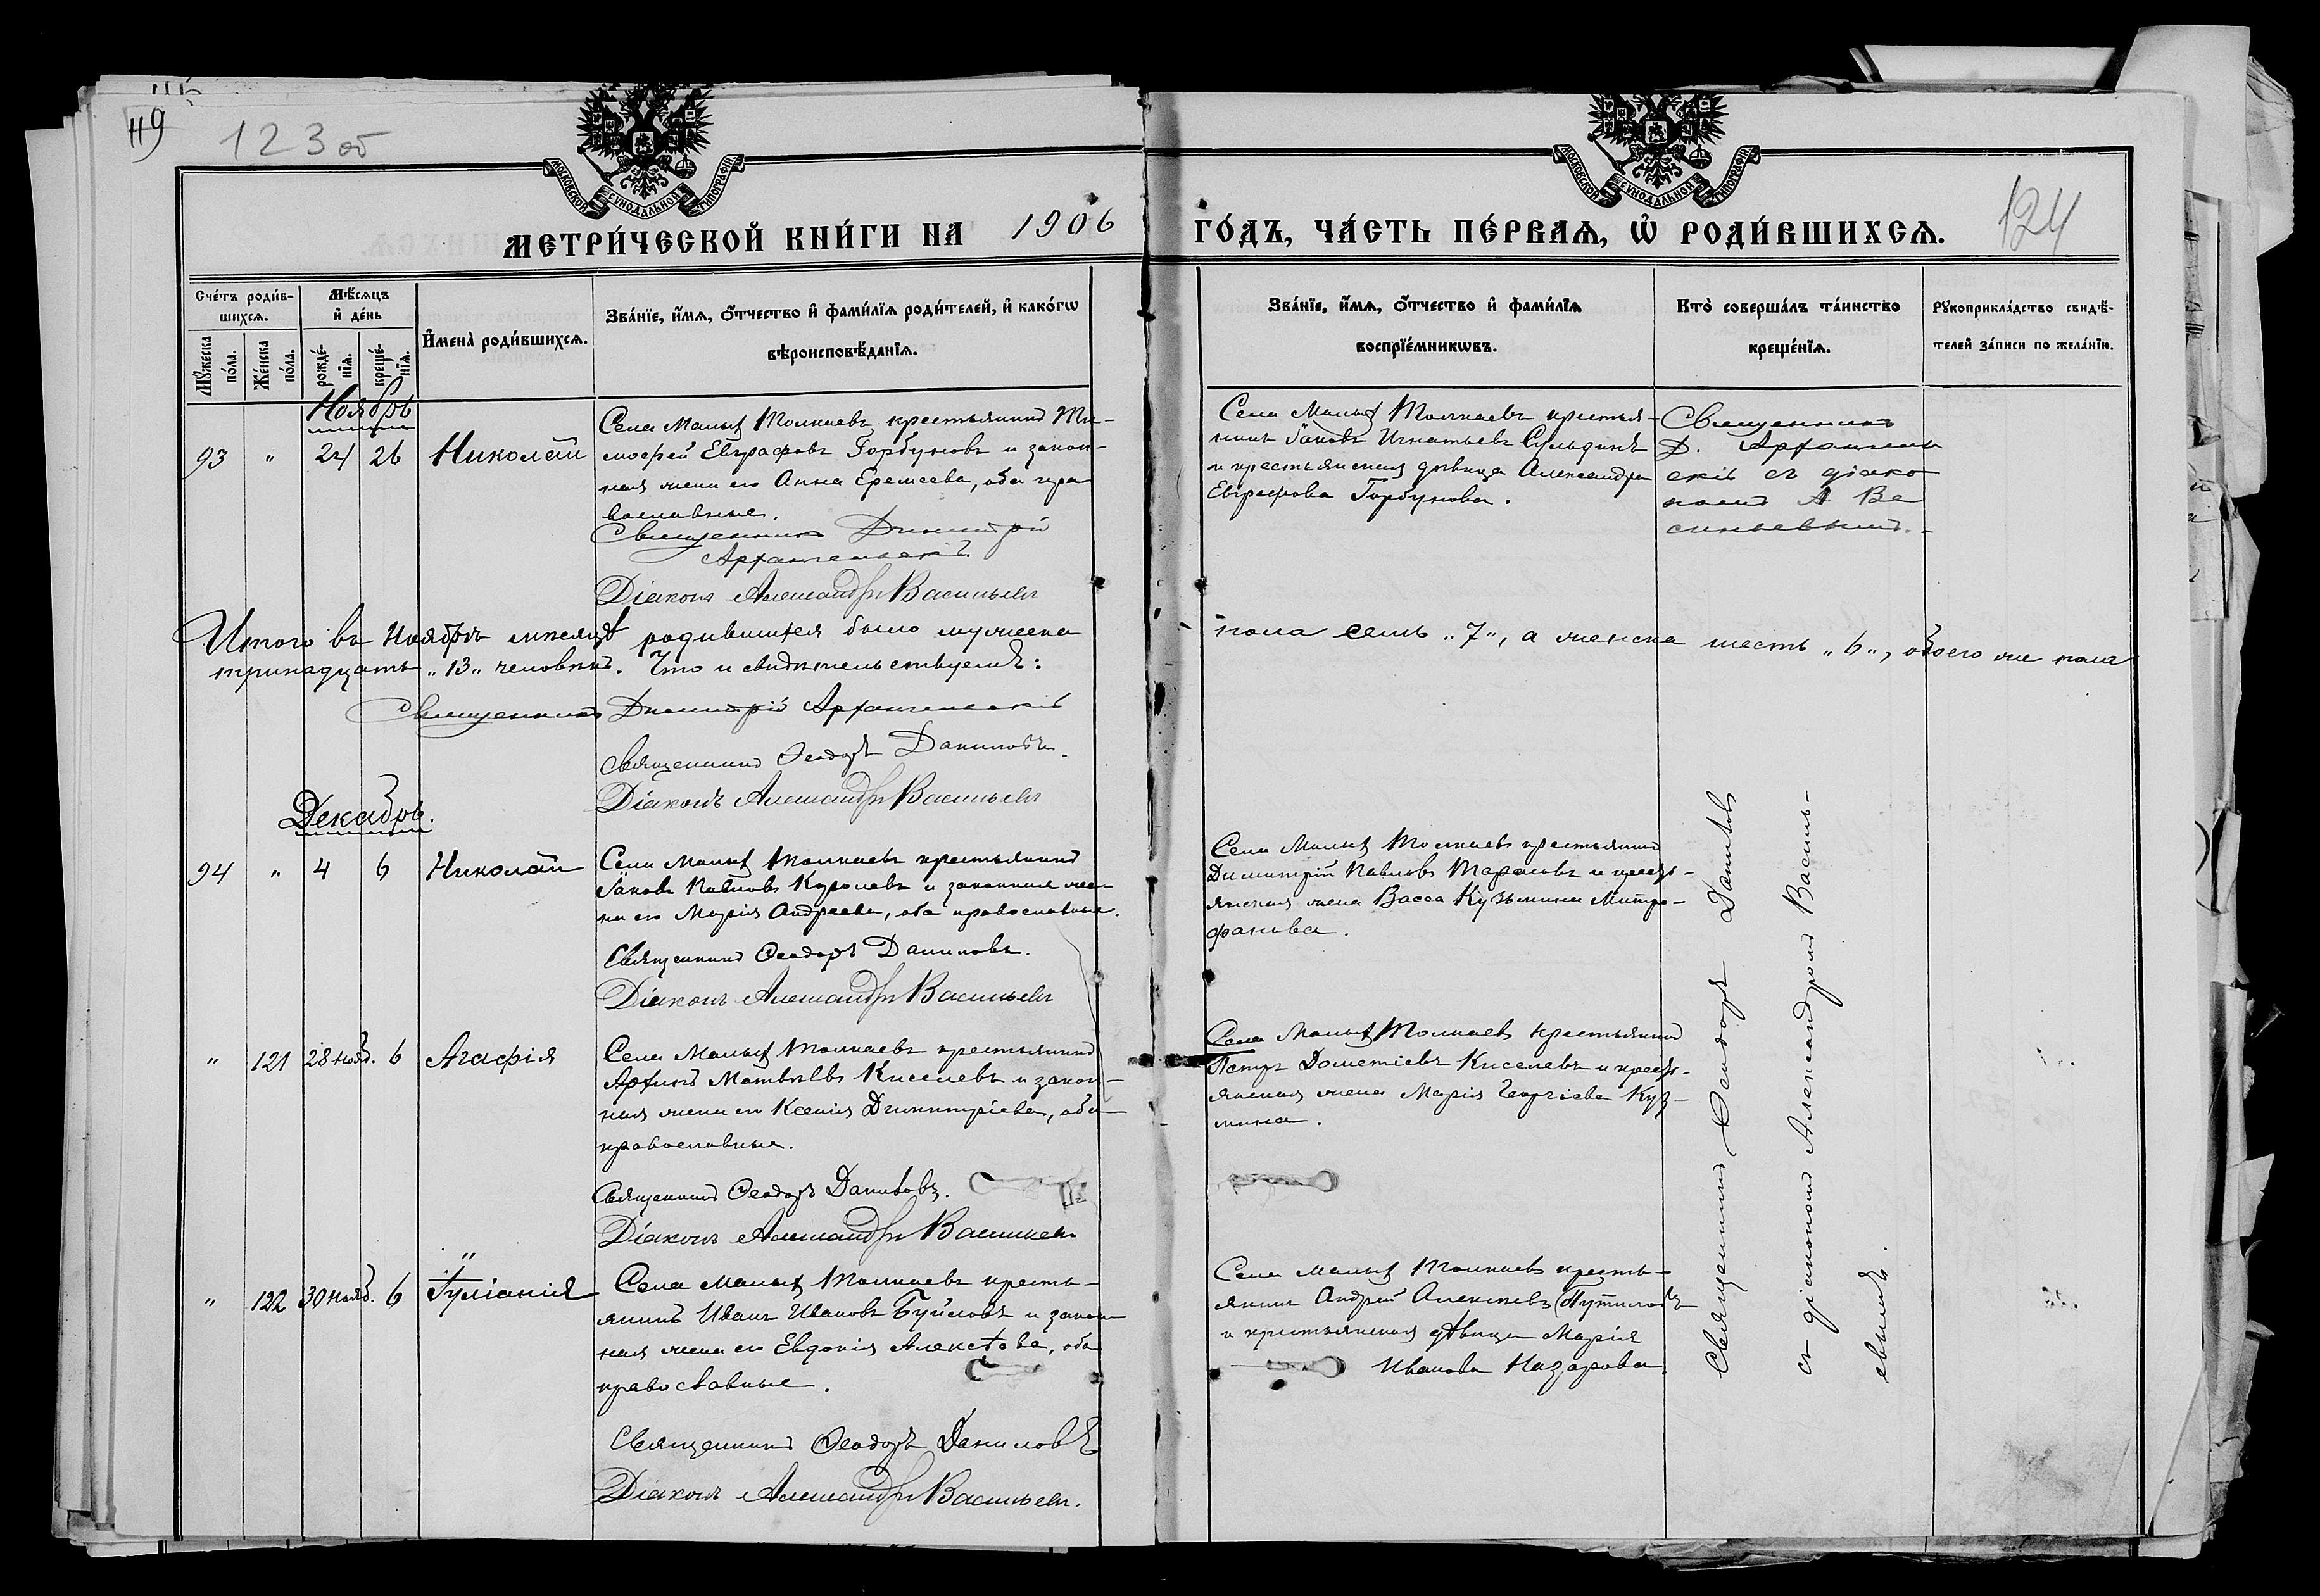 119
123 об
МОСКОВСКОЙ СѴНОДАЛЬНОЙ ТИПОГРАФІИ
МОСКОВСКОЙ СѴНОДАЛЬНОЙ ТИПОГРАФІИ
МЕТРИ́ЧЕСКОЙ КНИ́ГИ НА 1906 ГО́ДЪ, ЧА́СТЬ ПЕ́РВАѦ, Ѡ҆ РОДИ́ВШИХСѦ.
124
Сче́тъ роди́в-
шихсѧ.
Мꙋ́жеска по́ла.
Же́нска по́ла.
Мѣ́сѧцъ и҆ де́нь
рожде́-нїѧ.
креще́-нїѧ.
И҆мена̀ роди́вшихсѧ.
Зва́нїе, и҆́мѧ, ѻ҆́тчество и҆ фами́лїѧ роди́телей, и҆ како́гѡ
вѣроисповѣ́данїѧ.
Зва́нїе, и҆́мѧ, ѻ҆́тчество и҆ фами́лїѧ
воспрїе́мникѡвъ.
Кто̀ соверша́лъ та́инство
креще́нїѧ.
Рꙋкоприкла́дство свидѣ́-
телей за́писи по жела́нїю.
Ноябрь
93 " 24 26 Николай
Села Малых Толкаевъ крестьянинъ Ти-
мофей Евграфовъ Горбуновъ и закон-
ная жена его Анна Еремеева, оба пра-
вославные.
Священникъ Димитрій
Архангельскій
Діаконъ Александръ Васильевъ
Села Малых Толкаевъ крестья-
нинъ Іаковъ Игнатьевъ Сульдинъ
и крестьянская дѣвица Александра
Евграфова Горбунова.
Священникъ
Д. Архангель
скій съ діако
номъ А. Ва
сильевымъ.
Итого въ Ноябрѣ мѣсяцѣ родившихся было мужеска пола семь „7", а женска шесть „6", обоего же пола
тринадцать „13" человѣкъ. Что и свидѣтельствуемъ:
Священникъ Димитрій Архангельскій
Священникъ Ѳеодоръ Даниловъ.
Діаконъ Александръ Васильевъ
Декабрь.
94 " 4 6 Николай
Села Малых Толкаевъ крестьянинъ
Іаковъ Павловъ Куролевъ и законная же-
на его Марія Андреева, оба православные.
Священникъ Ѳеодоръ Даниловъ.
Діаконъ Александръ Васильевъ
Села Малых Толкаевъ крестьянинъ
Димитрій Павловъ Тарасовъ и кресть-
янская жена Васса Кузьмина Митро-
фанова.
" 121 28 нояб. 6 Агафія
Села Малых Толкаевъ крестьянинъ
Архипъ Матвѣевъ Киселевъ и закон-
ная жена его Ксенія Димитріева, оба
православные.
Священникъ Ѳеодоръ Даниловъ.
Діаконъ Александръ Васильевъ
Села Малых Толкаевъ крестьянинъ
Петръ Дометіевъ Киселевъ и кресть-
янская жена Марія Георгіева Куз-
мина.
" 122 30 нояб. 6 Іуліанія
Села Малых Толкаевъ кресть-
янинъ Иванъ Ивановъ Буйловъ и закон-
ная жена его Евдокія Алексѣева, оба
православные.
Священникъ Ѳеодоръ Даниловъ
Діаконъ Александръ Васильевъ.
Села Малых Толкаевъ кресть-
янинъ Андрей Алексѣевъ Путиловъ
и крестьянская дѣвица Марія
Иванова Назарова.
Священникъ Ѳеодоръ Даниловъ
съ діакономъ Александромъ Василь-
евымъ.